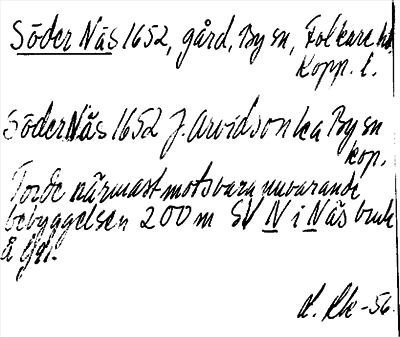 Söder Näs 1652, gård, By sn, Folkare hd,
Kopp. l.
Söder Näs 1652 J. Arvidson ka By sn
kop.
Torde närmast motsvara nuvarande
bebyggelsen 200 m SV N i Näs bruk
å Gsk.
-56.